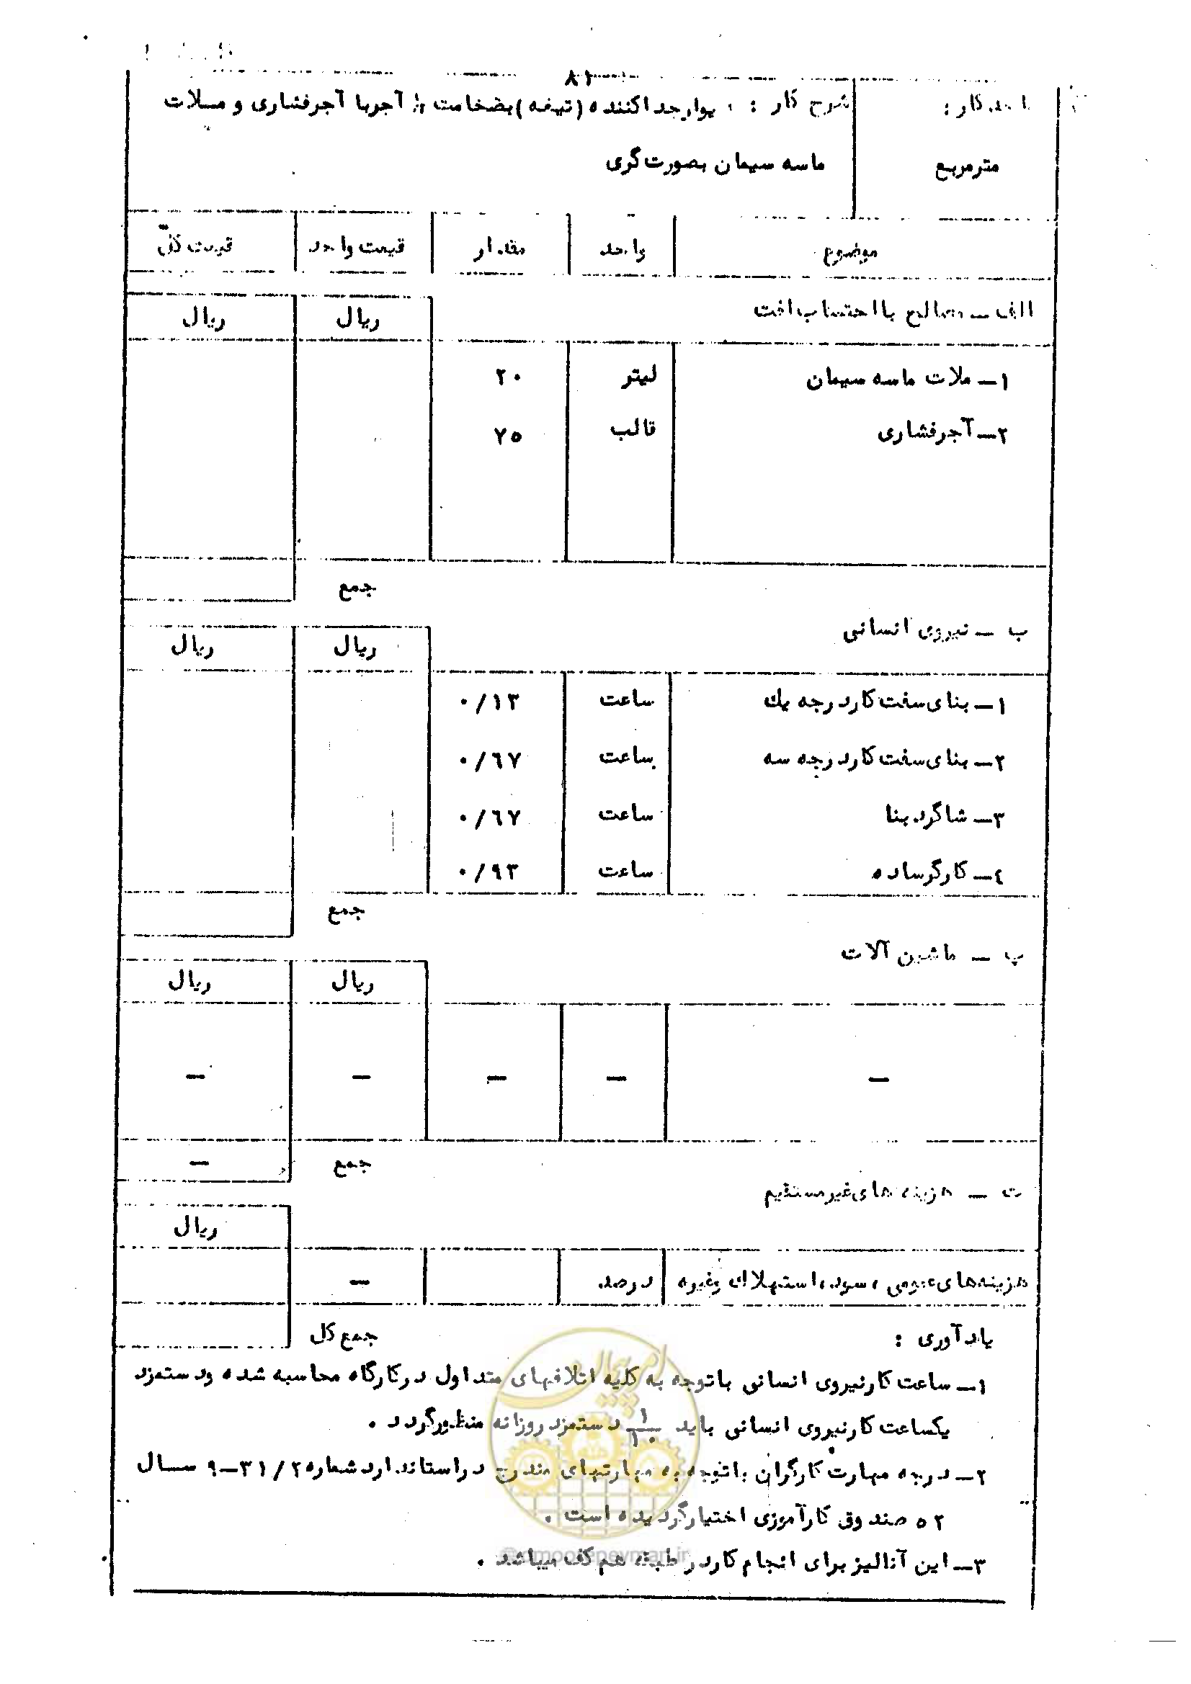 ۸۲
واحد کار :
شرح کار : دیوار جداکننده (تیغه) بضخامت ½ آجر با آجرفشاری و مسلات
مترمربع
ماسه سیمان بصورت گری
موضوع واحد مقدار قیمت واحد قیمت کل
الف ـ مصالح با احتساب افت ریال ریال
۱ـ ملات ماسه سیمان لیتر ۲۰
۲ـ آجرفشاری قالب ۷۵
جمع
ب ـ نیروی انسانی ریال ریال
۱ـ بنای سفت کار درجه یك ساعت ۰/۱۳
۲ـ بنای سفت کار درجه سه ساعت ۰/۶۷
۳ـ شاگرد بنا ساعت ۰/۶۷
٤ـ کارگر ساده ساعت ۰/۹۳
جمع
پ ـ ماشین آلات ریال ریال
ـ ـ ـ ـ ـ
جمع ـ
ت ـ هزینه های غیرمستقیم ریال
هزینه‌های عمومی ، سود ، استهلاك وغیره درصد ـ
یادآوری : جمع کل
۱ـ ساعت کارنیروی انسانی باتوجه به کلیه اتلافهای متداول درکارگاه محاسبه شده ودستمزد
یکساعت کارنیروی انسانی باید ۱/۱۰ دستمزد روزانه منظورگردد .
۲ـ درجه مهارت کارگران باتوجه به مهارتهای مندرج دراستاندارد شماره ۲/۳۱ـ۹ سـال
۵۲ صندوق کارآموزی اختیارگردیده است .
۳ـ این آنالیز برای انجام کاردر طبقه هم کف میباشد .